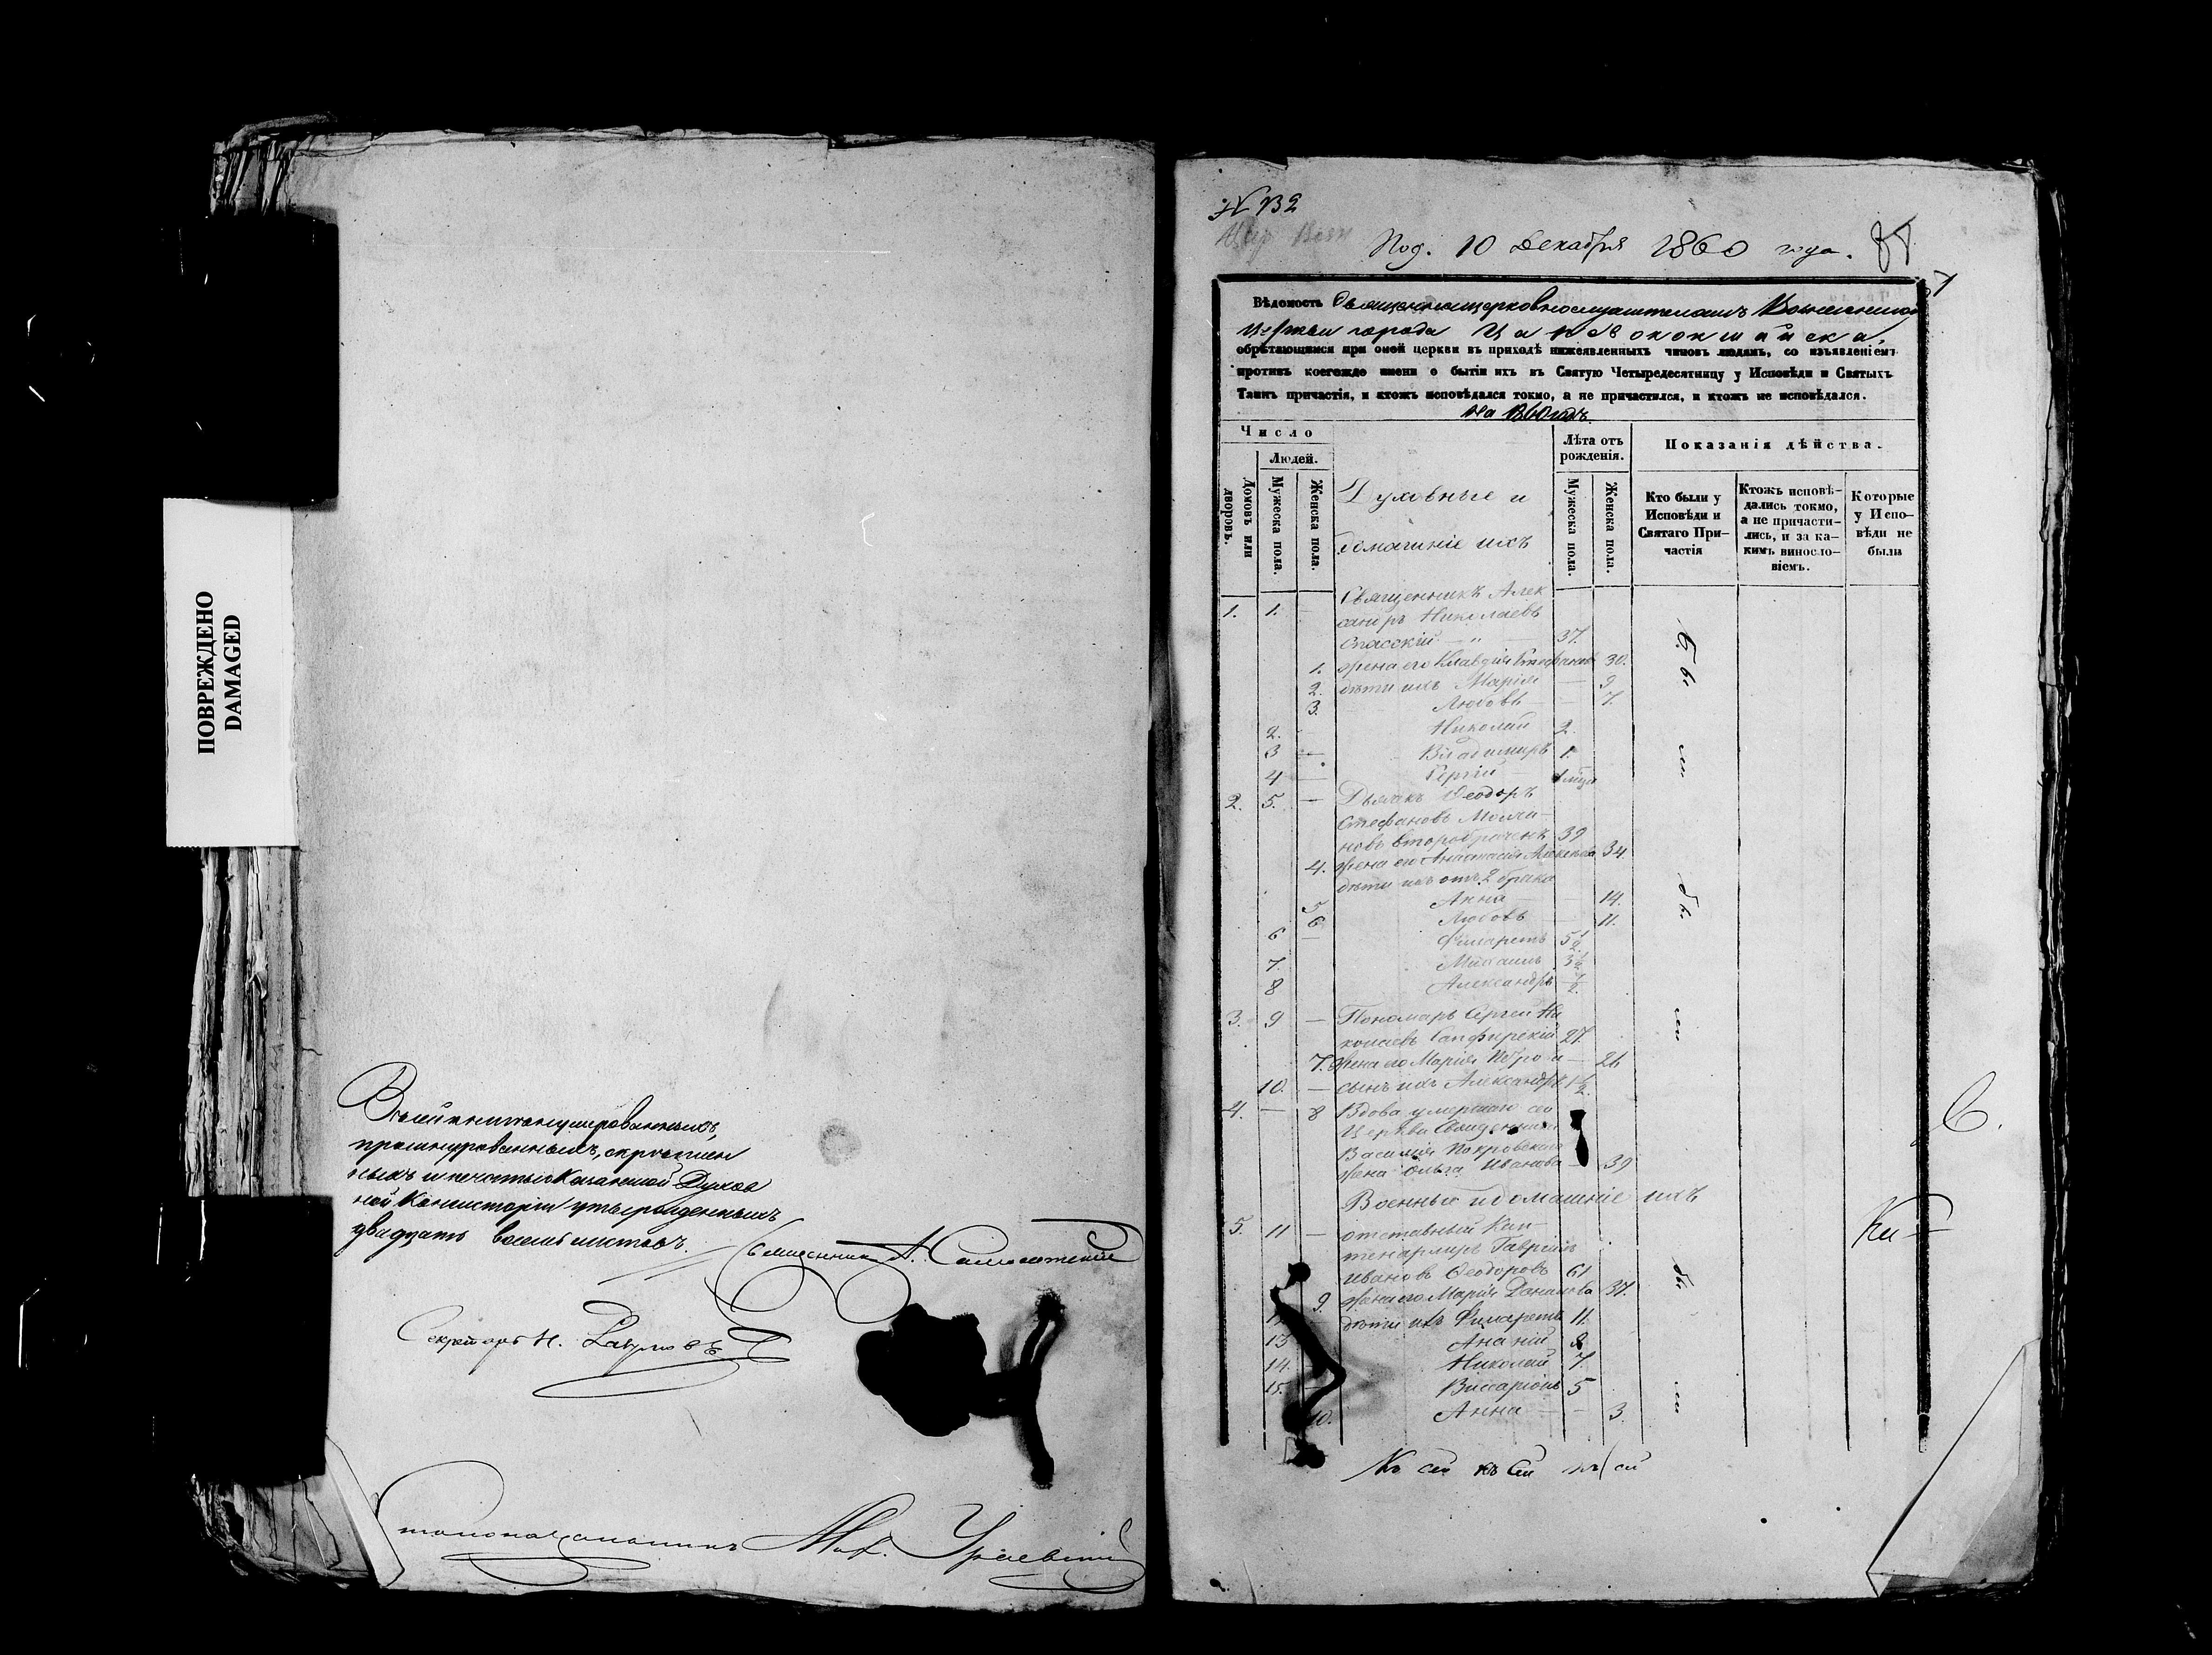 ПОВРЕЖДЕНО
DAMAGED
двадцать восемь листовъ.
Священникъ А.
Секретарь Н.
Столоначальникъ
N 132
Под. 10 Декабря 1860 года.
Вѣдомость Священноцерковнослужителямъ Вознесенской
Церкви города Царевококшайска,
обрѣтающимся при оной церкви въ приходѣ нижеявленныхъ чиновъ людямъ, со изъявленіемъ
противъ коегождо имени о бытіи ихъ въ Святую Четыредесятницу у Исповѣди и Святыхъ
Таинъ причастія, и ктожъ исповѣдался токмо, а не причастился, и ктожъ не исповѣдался.
на 1860 годъ.
Число
Людей.
Домовъ или дворовъ.
Мужеска пола.
Женска пола.
Духовные и
домашніе ихъ
Лѣта отъ рожденія.
Мужеска пола.
Женска пола.
Показанія дѣйства.
Кто были у Исповѣди и Святаго Причастія
Ктожъ исповѣдались токмо, а не причастились, и за какимъ винословіемъ.
Которые у Исповѣди не были
Священникъ Алек
1. 1. сандръ Николаевъ
Спасскій — " — 37.
1. жена его Клавдія Стефанов 30.
2. дѣти ихъ Марія — 9
3. Любовь — 7.
2. Николай 2.
3 — Владимиръ 1
4 — Сергій
2. 5. — Дьячокъ Ѳеодоръ
Стефановъ Молча-
новъ второбраченъ 39
4. жена его Анастасія 34.
дѣти ихъ отъ 2 брака
5 Анна — 14.
6 Любовь — 11.
6 — Филаретъ 5 1/2
7. Михаилъ 3 1/2
8 Александръ 1/2
3. 9 — Пономарь Сергей Ни
колаевъ Сапфирскій 27.
7. Жена его Марія Петро — 26
10. — сынъ ихъ Александръ 1 1/2
4. — 8 Вдова умершаго сей
Церкви Священника
Василія Покровскаго
жена Ольга Иванова — 39
Военные и домашніе ихъ
5. 11 — отставный Кап-
тенармусъ Гавріилъ
Ивановъ Ѳеодоровъ 61
9. Жена его Марія Данилова 37.
дѣти ихъ Филаретъ 11.
13 Ананій 8
14. Николай 7.
15. Виссаріонъ 5
10. Анна — 3.